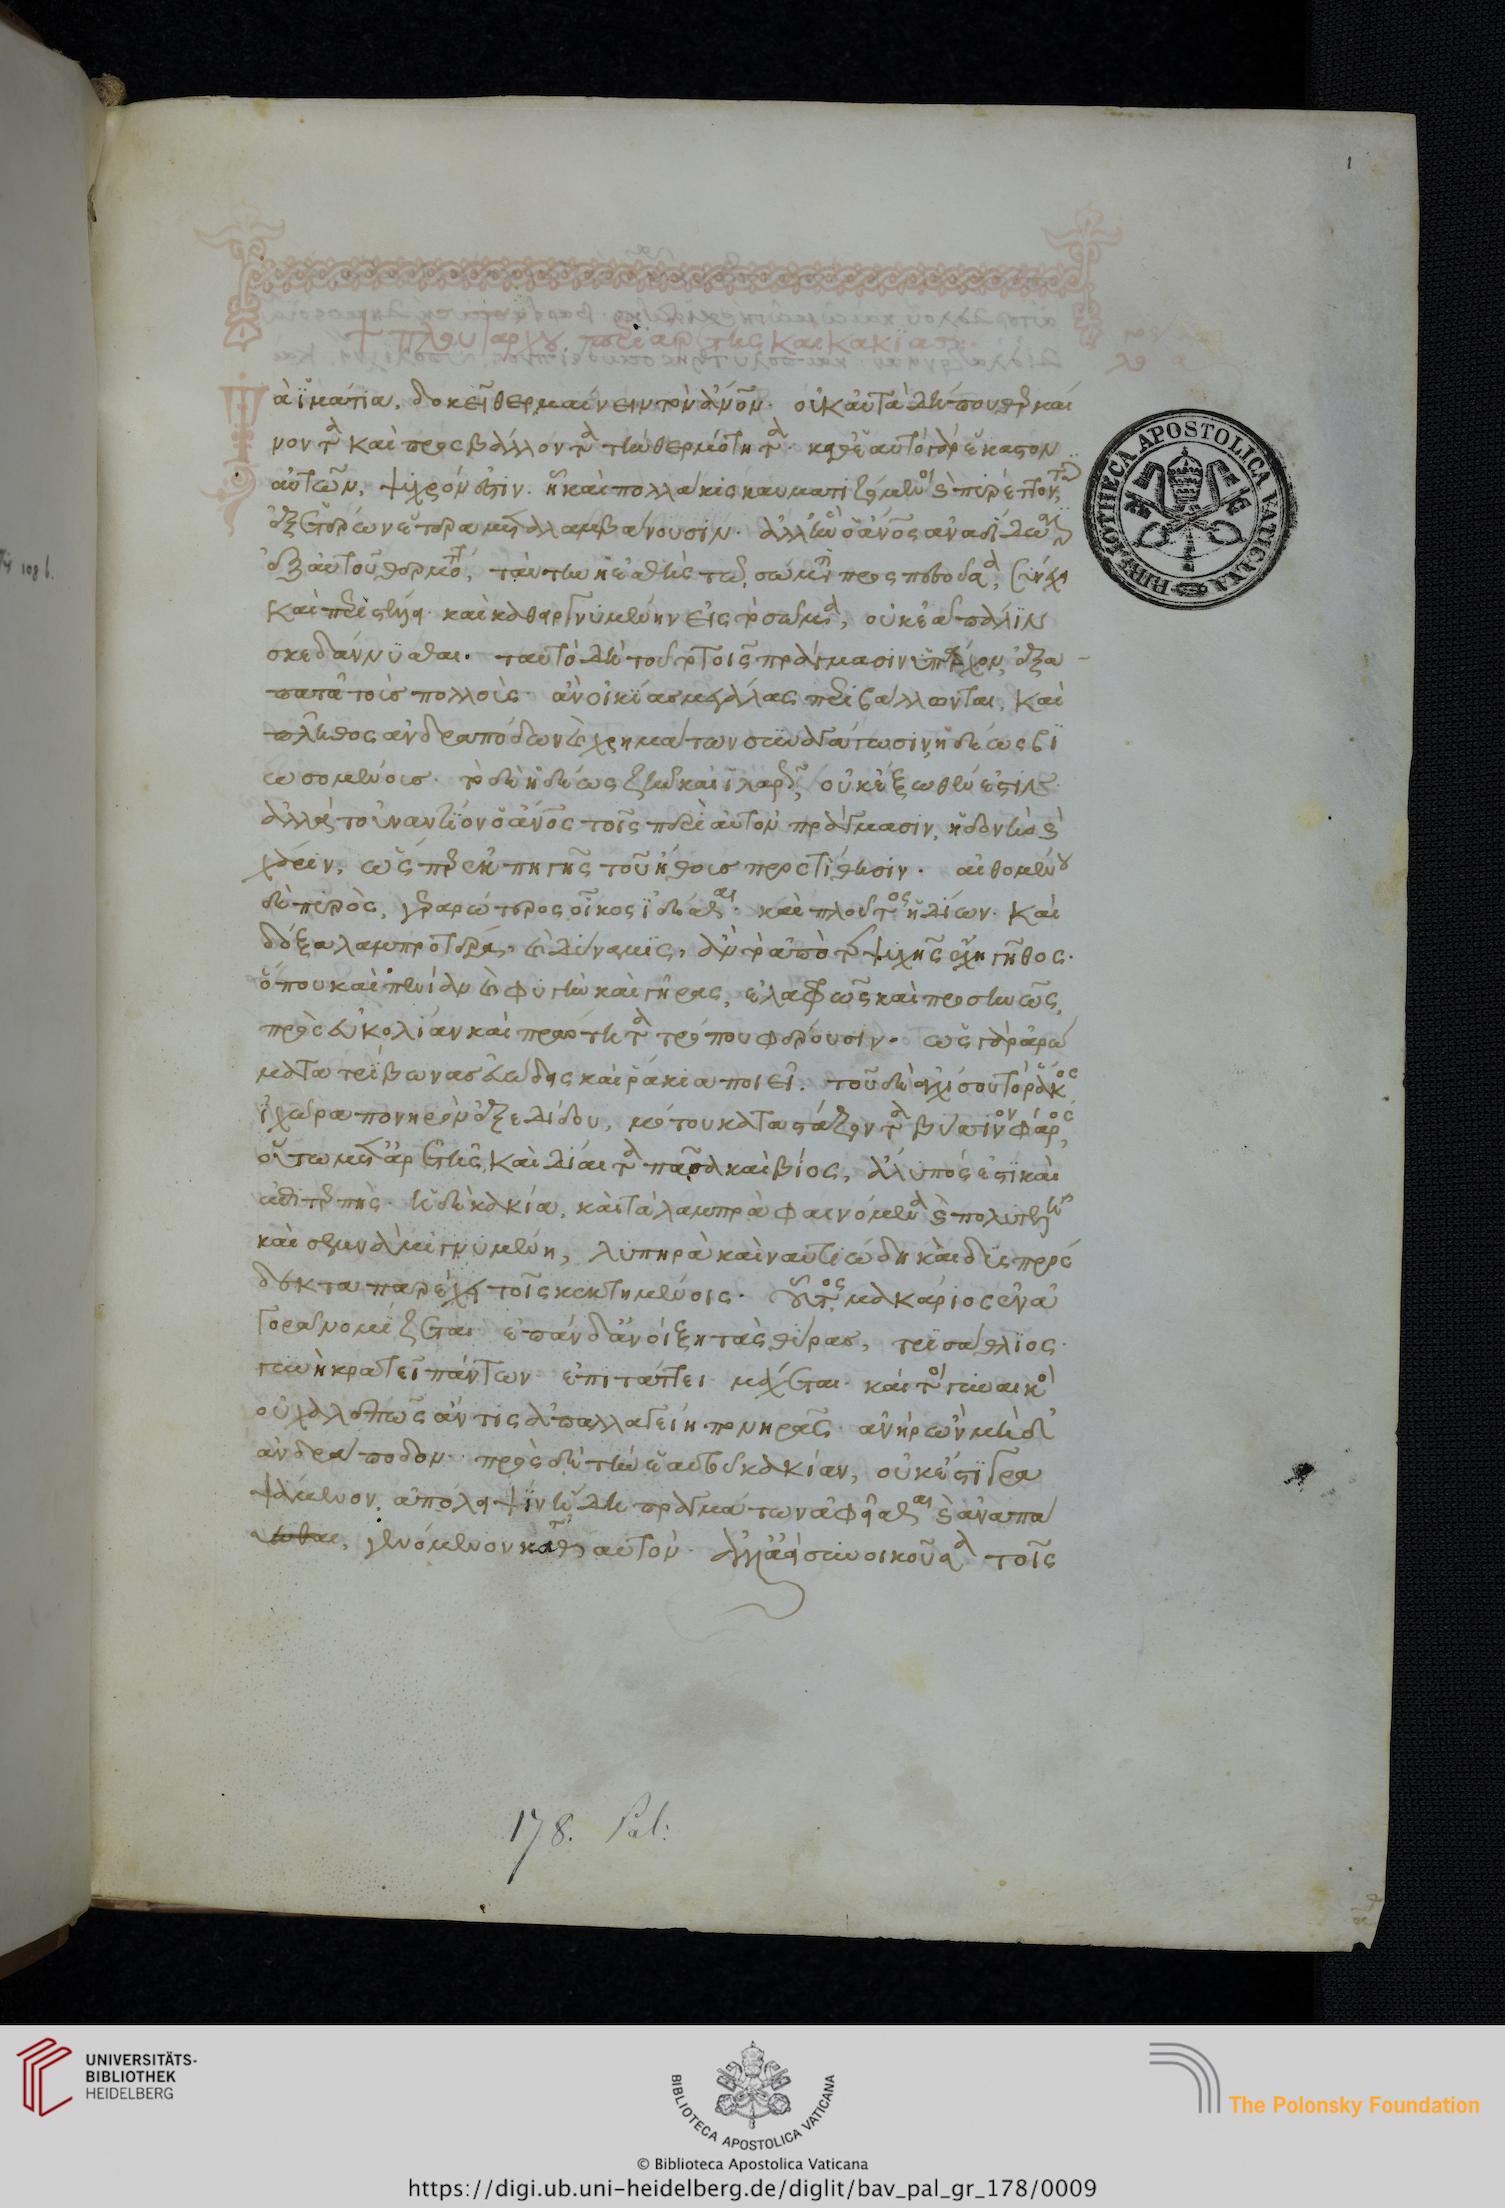 + πλουτάρχου περὶ ἀρετῆς καὶ κακίας:
Τὰ ἱμάτια, δοκεῖ θερμαίνειν τὸν ἄνον· οὐκ αὐτὰ δήπου θερμαί
νοντα καὶ προσβάλλοντα τὴν θερμότητα· καθ' ἑαυτὸ γὰρ ἕκαστον
αὐτῶν, ψυχρόν ἐστιν. ἧ καὶ πολλάκις καυματιζόμενοι καὶ πυρέττοντες,
ἐξ ἑτέρων ἕτερα μεταλαμβάνουσιν. ἀλλ' ἣν ὁ ἄνος ἀναδίδωσιν
ἐξ αὑτοῦ θερμότητα, ταύτην ἡ ἐσθὴς τῷ σώματι προσπεσοῦσα, συνέχει
καὶ περιστέλλει· καὶ καθειργνυμένην εἰς τὸ σῶμα, οὐκ ἐᾷ πάλιν
σκεδάννυσθαι. ταὐτὸ δὴ τοῦτο τοῖς πράγμασιν ὑπάρχον, ἐξα
πατᾷ τοὺς πολλοὺς· ἂν οἰκίας μεγάλας περιβάλλωνται, καὶ
πλῆθος ἀνδραπόδων καὶ χρημάτων συναγάγωσιν, ἡδέως βι
ωσομένους. τὸ δὲ ἡδέως ζῆν καὶ ἱλαρῶς, οὐκ ἔξωθέν ἐστιν·
ἀλλὰ τοὐναντίον ὁ ἄνος τοῖς περὶ αὑτὸν πράγμασιν, ἡδονὴν καὶ
χάριν, ὥσπερ ἐκ πηγῆς τοῦ ἤθους προστίθησιν. αἰθομένου
δὲ πυρὸς, γεραρώτερος οἶκος ἰδέσθαι· καὶ πλοῦτος ἡδίων. καὶ
δόξα λαμπροτέρα. καὶ δύναμις, ἂν τὸ ἀπὸ τῆς ψυχῆς ἔχη γῆθος.
ὅπου καὶ πενίαν καὶ φυγὴν καὶ γῆρας, ἐλαφρῶς καὶ προσηνῶς,
πρὸς εὐκολίαν καὶ πραότητα τρόπου φέρουσιν. ὡς γὰρ ἀρώ
ματα τρίβωνας εὐώδεις καὶ ῥάκια ποιεῖ. τοῦ δὲ ἀγχίσου τὸ ῥάκος
ἰχῶρα πονηρὸν ἐξεδίδου, νώτου καταστάζοντα βύσσινον φάρος,
οὕτω μετ' ἀρετῆς, καὶ δίαιτα πᾶσα καὶ βίος, ἄλυπός ἐστι καὶ
ἐπιτερπής. ἡ δὲ κακία, καὶ τὰ λαμπρὰ φαινόμενα καὶ πολυτελῆ
καὶ σεμνὰ μιγνυμένη, λυπηρὰ καὶ ναυτιώδη καὶ δυσπρόσ
δεκτα παρέχει τοῖς κεκτημένοις. οὗτος μακάριος ἐν ἀ
γορᾷ νομίζεται· ἐπὰν δ' ἀνοίξη τὰς θύρας, τρισάθλιος.
γυνὴ κρατεῖ πάντων· ἐπιτάττει μάχεται· καίτοι γυναικὸς
οὐ χαλεπῶς ἄν τις ἀπαλλαγείη πονηρᾶς· ἀνὴρ ὢν μὴ δ'
ἀνδράποδον· πρὸς δὲ τὴν ἑαυτοῦ κακίαν, οὐκ ἔστι γρα
ψάμενον, ἀπόλειψιν ἤδη πραγμάτων ἀφεῖσθαι καὶ ἀναπαύ
, γενόμενον καθ' αὑτόν. ἀλλ' ἀεὶ συνοικοῦσα τοῖς
178. Pal:
1
BIBLIOTHECA APOSTOLICA VATICANA
UNIVERSITÄTS-
BIBLIOTHEK
HEIDELBERG
BIBLIOTECA APOSTOLICA VATICANA
The Polonsky Foundation
© Biblioteca Apostolica Vaticana
https://digi.ub.uni-heidelberg.de/diglit/bav_pal_gr_178/0009